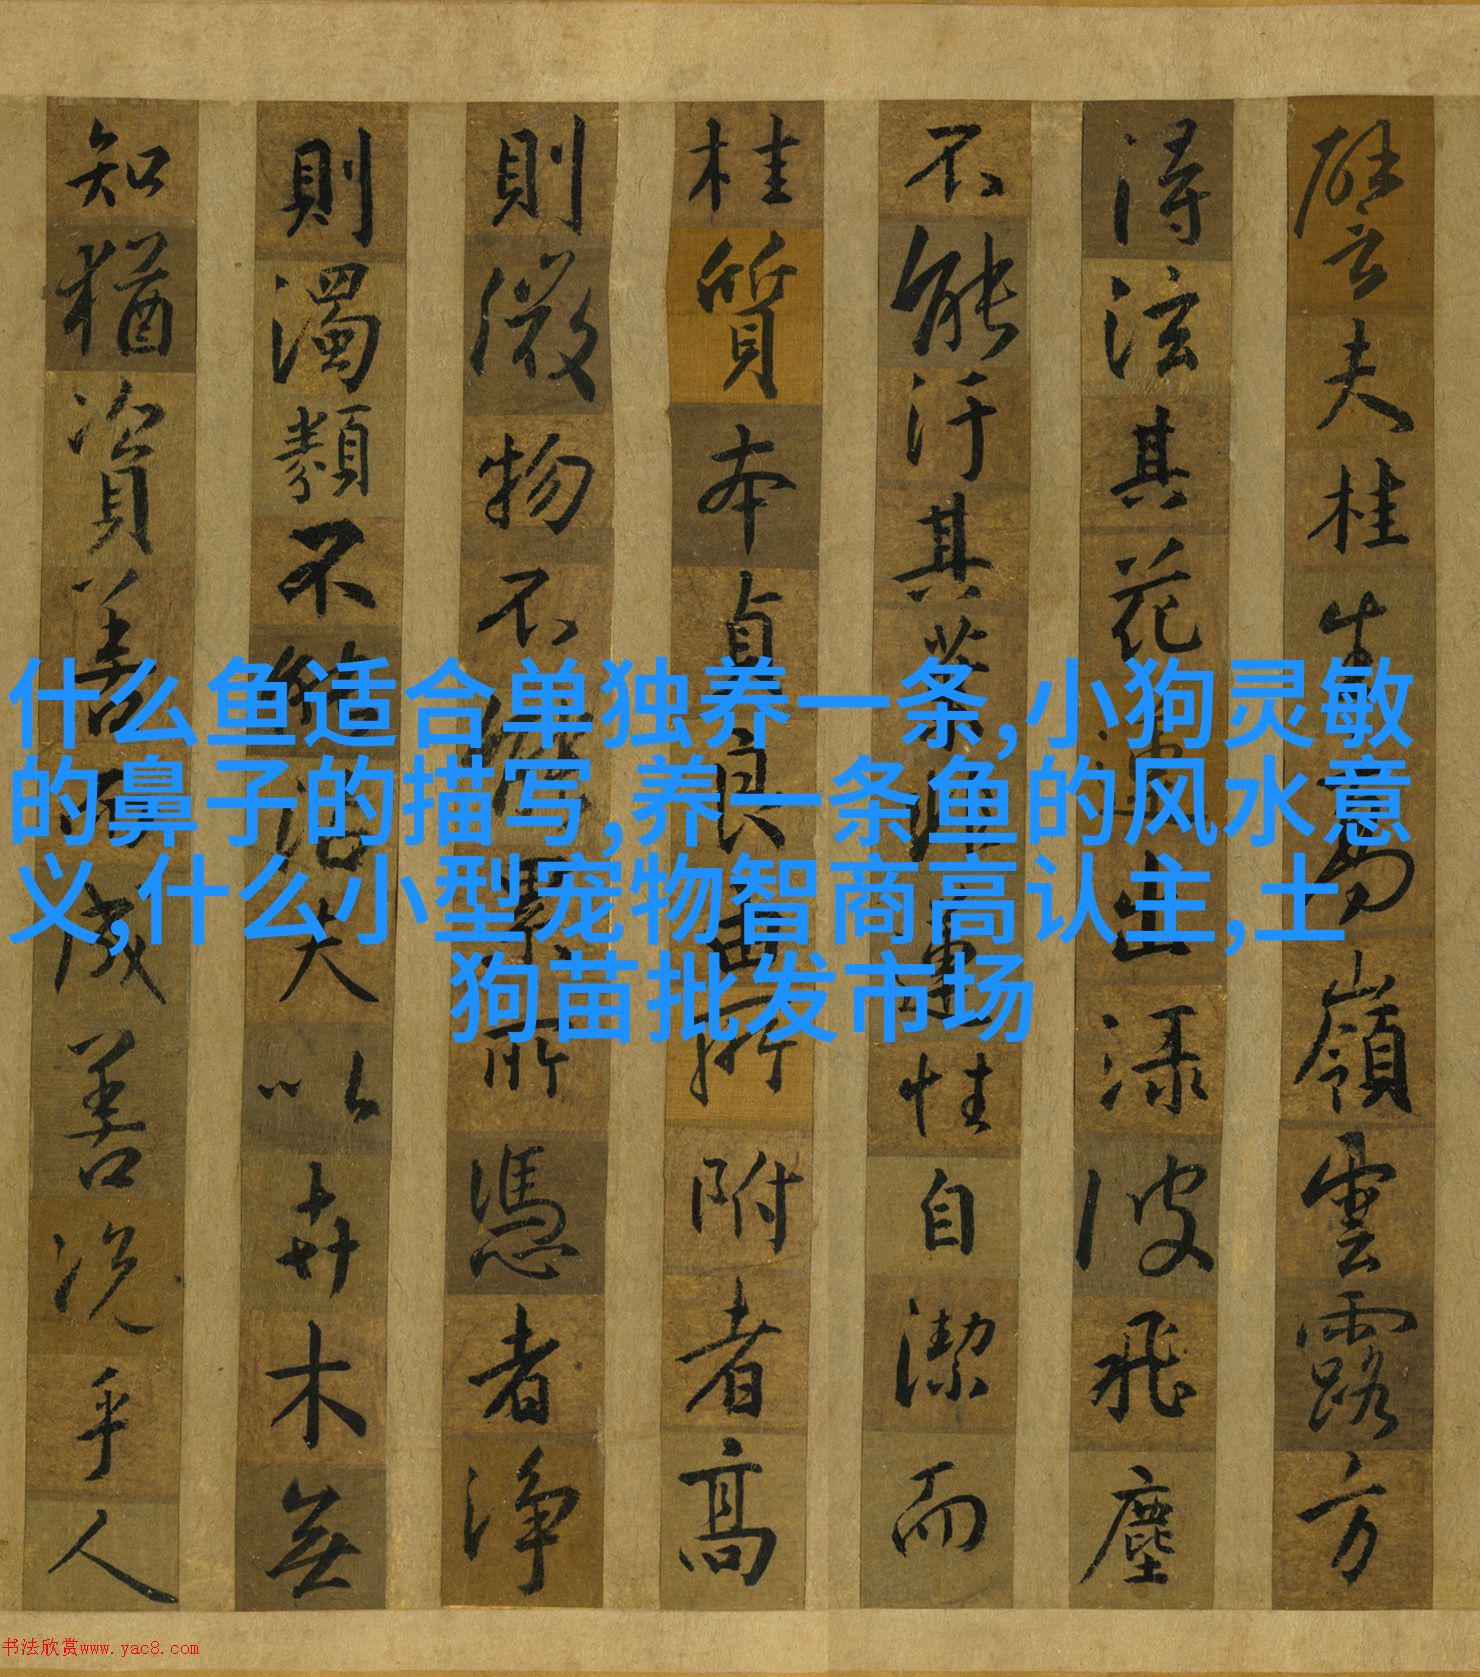 什么鱼适合单独养一条,小狗灵敏
的鼻子的描写,养一条鱼的风水意
义,什么小型宠物智商高认主,土
狗苗批发市场
譬夫桂生高嶺雲露方
得泫其花蓮出淥波飛塵
不能汙其葉非蓮性自潔而
桂質本貞良由所附者高
則微物不能累所憑者淨
則濁類不能沾夫以卉木無
知猶資善而成善況乎人
书法欣赏www.yac8.com